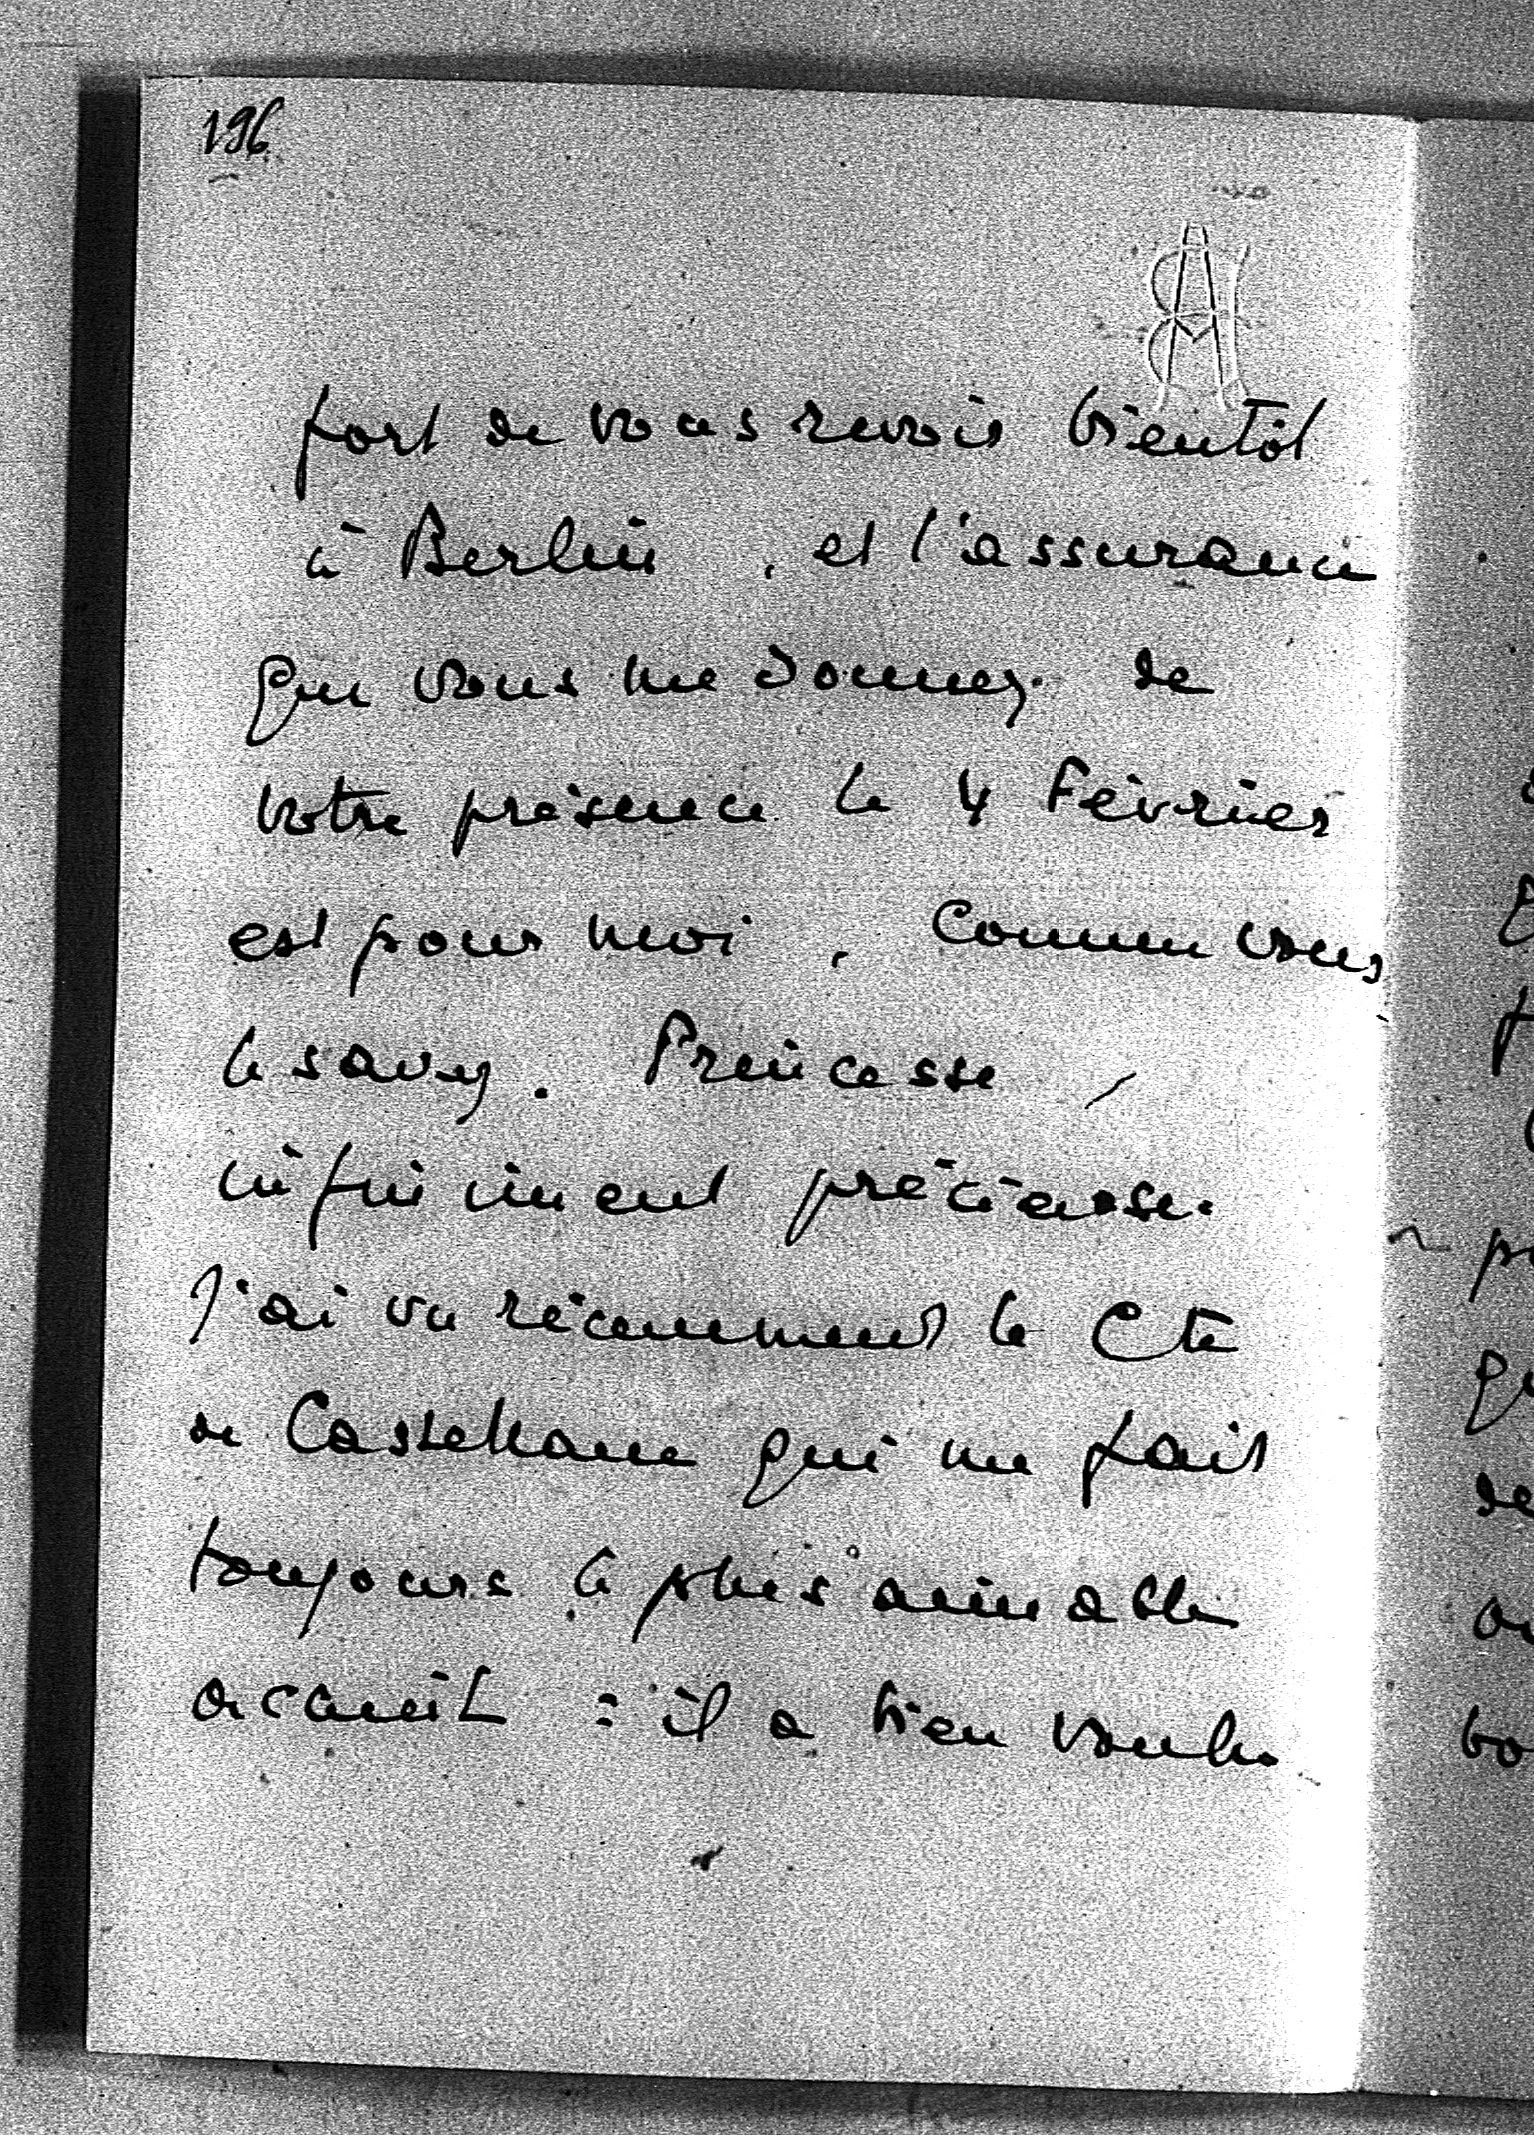 196
fort de vous revoir bientôt
à Berlin, et l'assurance
que vous me donnez de
votre présence le 4 Février
est pour moi, comme vous
le savez. Princesse,
infiniment précieuse.
J'ai vu récemment le Cte
de Castellane qui me fait
toujours le plus aimable
accueil : il a bien voulu